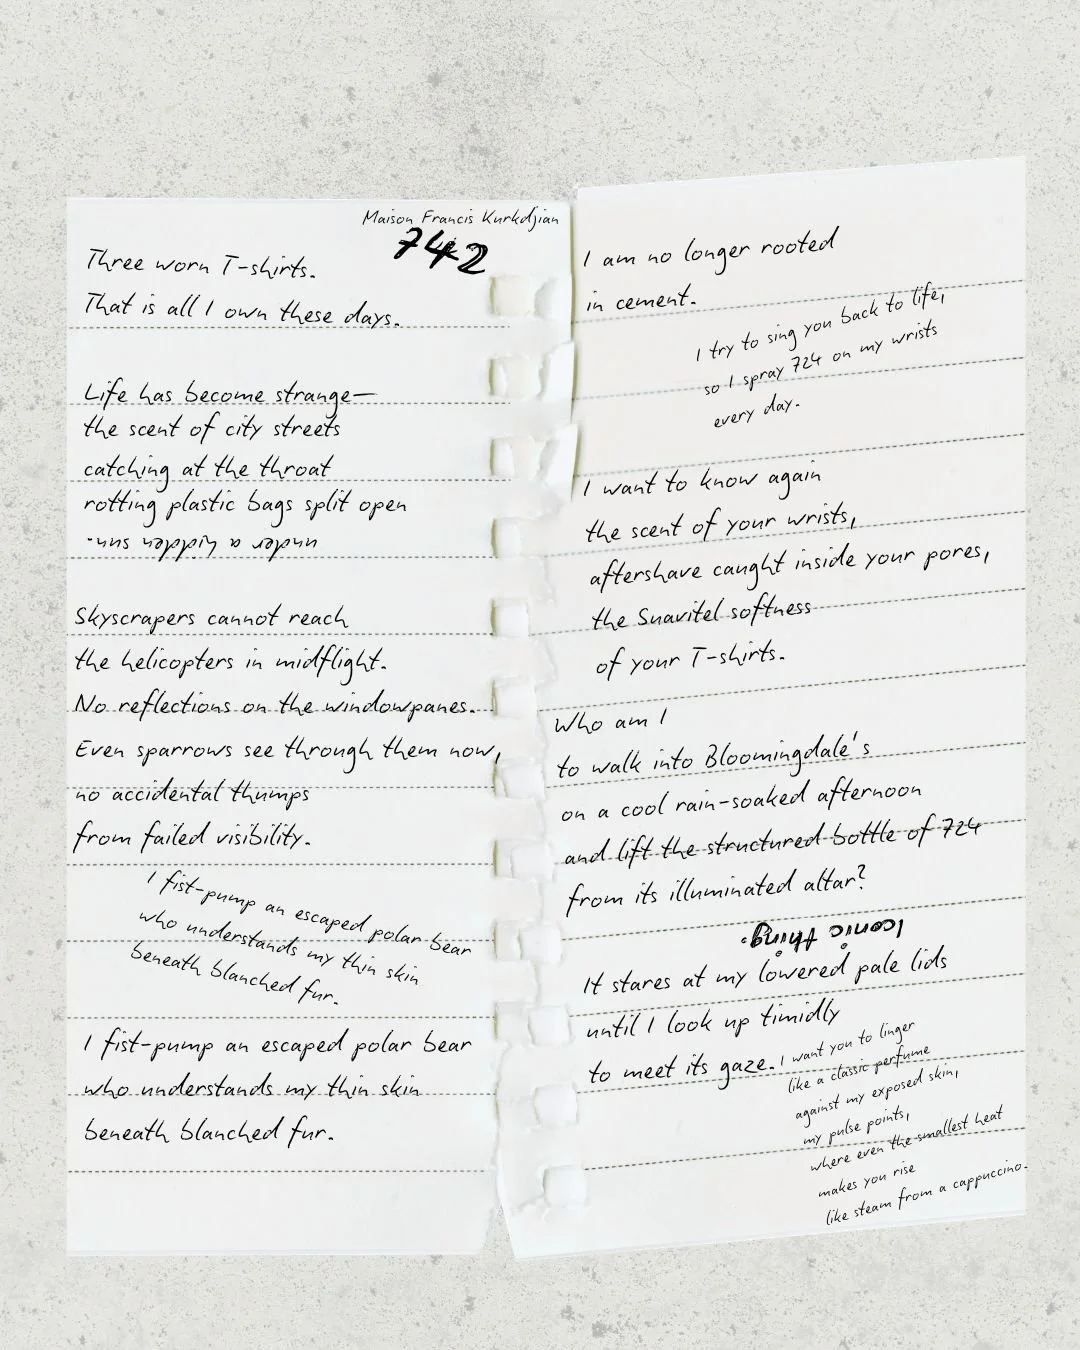 Maison Francis Kurkdjian
742
Three worn T-shirts.
That is all I own these days.
Life has become strange—
the scent of city streets
catching at the throat
rotting plastic bags split open
under a hidden sun.
Skyscrapers cannot reach
the helicopters in midflight.
No reflections on the windowpanes.
Even sparrows see through them now,
no accidental thumps
from failed visibility.
I fist-pump an escaped polar bear
who understands my thin skin
beneath blanched fur.
I fist-pump an escaped polar bear
who understands my thin skin
beneath blanched fur.
I am no longer rooted
in cement.
I try to sing you back to life,
so I spray 724 on my wrists
every day.
I want to know again
the scent of your wrists,
aftershave caught inside your pores,
the Suavitel softness
of your T-shirts.
Who am I
to walk into Bloomingdale's
on a cool rain-soaked afternoon
and lift the structured bottle of 724
from its illuminated altar?
Iconic thing.
It stares at my lowered pale lids
until I look up timidly
to meet its gaze.
I want you to linger
like a classic perfume
against my exposed skin,
my pulse points,
where even the smallest heat
makes you rise
like steam from a cappuccino.